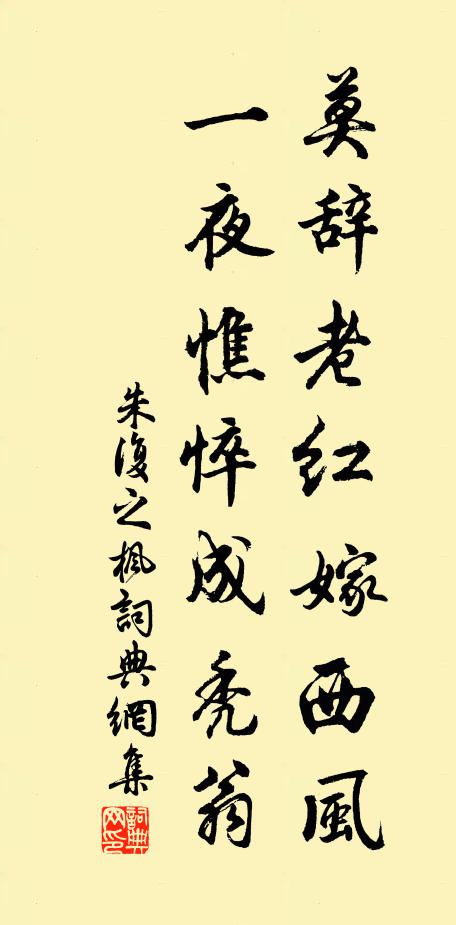 莫辞老红嫁西風
一夜憔悴成秃翁
朱復之楓詞典網集
詞典網印